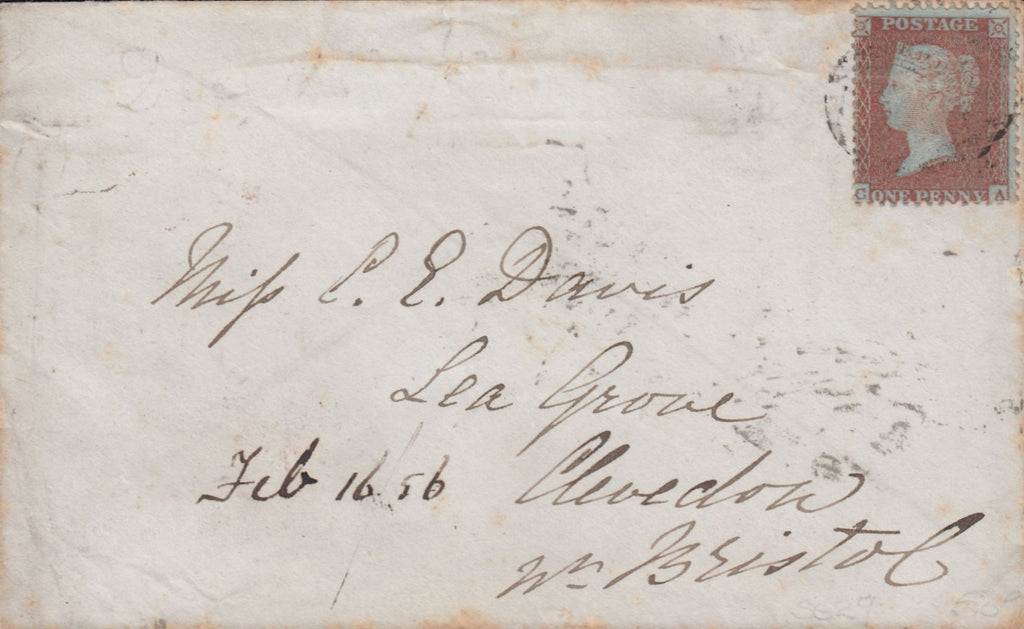 POSTAGE
G ONE PENNY A
Miſs C. E. Davis
Lea Grove
Feb 16 56 Clevedon
nr Bristol